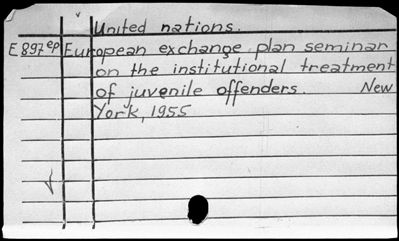 United nations.
E 897ep European exchange plan seminar
on the institutional treatment
of juvenile offenders. New
York, 1955